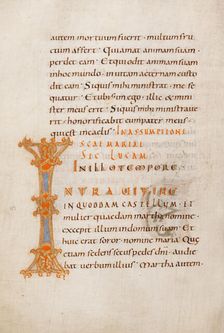 autem mortuum fuerit · multum fru
ctum affert · Qui amat animam suam
perdet eam · Et qui odit animam suam
in hoc mundo · in uitam aeternam custo
dit eam · Si quis mihi ministrat · me se
quatur · Et ubi sum ego · illic & mini
ster meus erit · Si quis mihi ministrauerit ·
honorificabit eum pater meus
qui est in caelis · IN ASSUMPTIONE
SCAE MARIAE
SEC LUCAM
IN ILLO TEMPORE
INTRAUIT IHS
IN QUODDAM CASTELLUM · ET
mulier quaedam martha nomine
excepit illum in domum suam · Et
huic erat soror · nomine maria · Quae
etiam sedens secus pedes dni · audie
bat uerbum illius · Martha autem